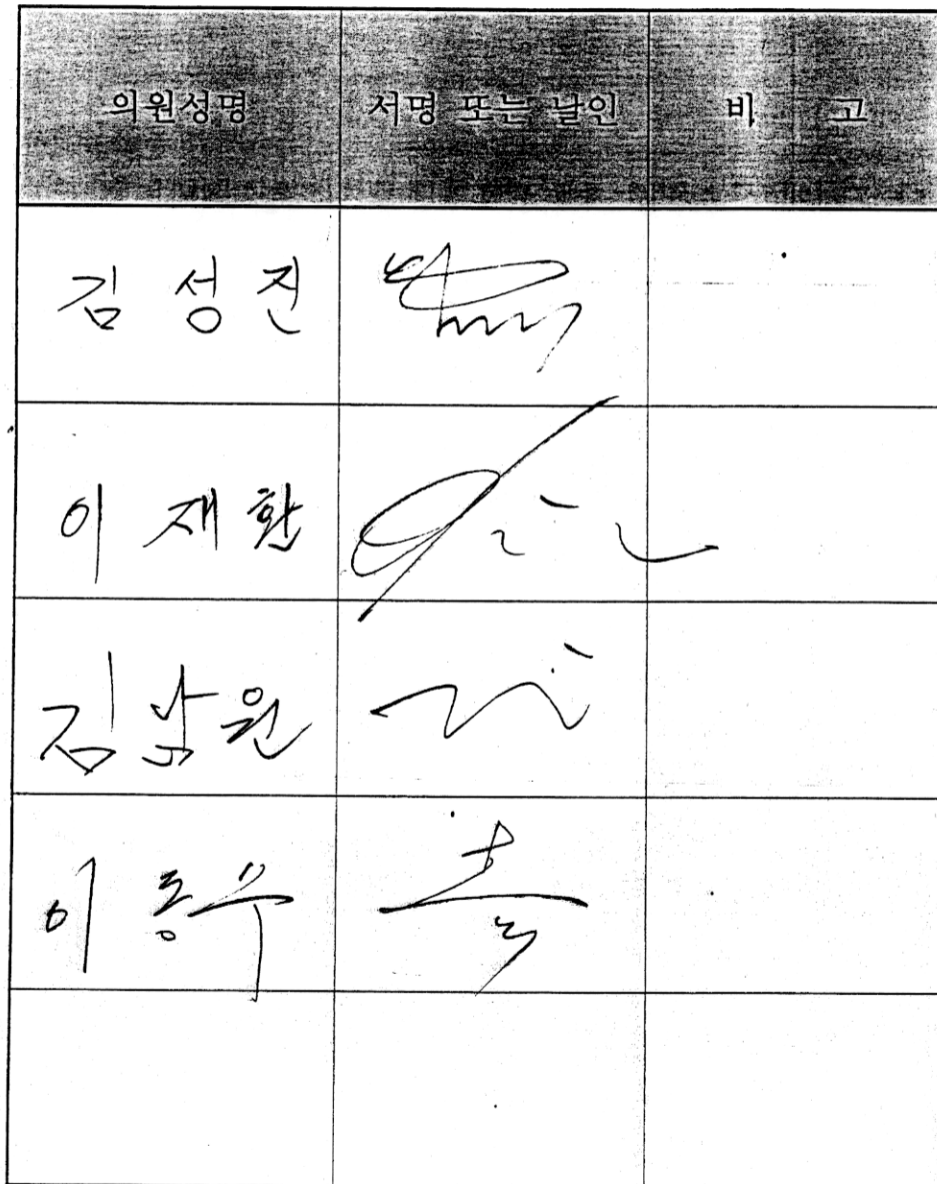 의원성명 서명 또는 날인 비 고
김 성 진
이 재 환
김 남 원
이 동 우